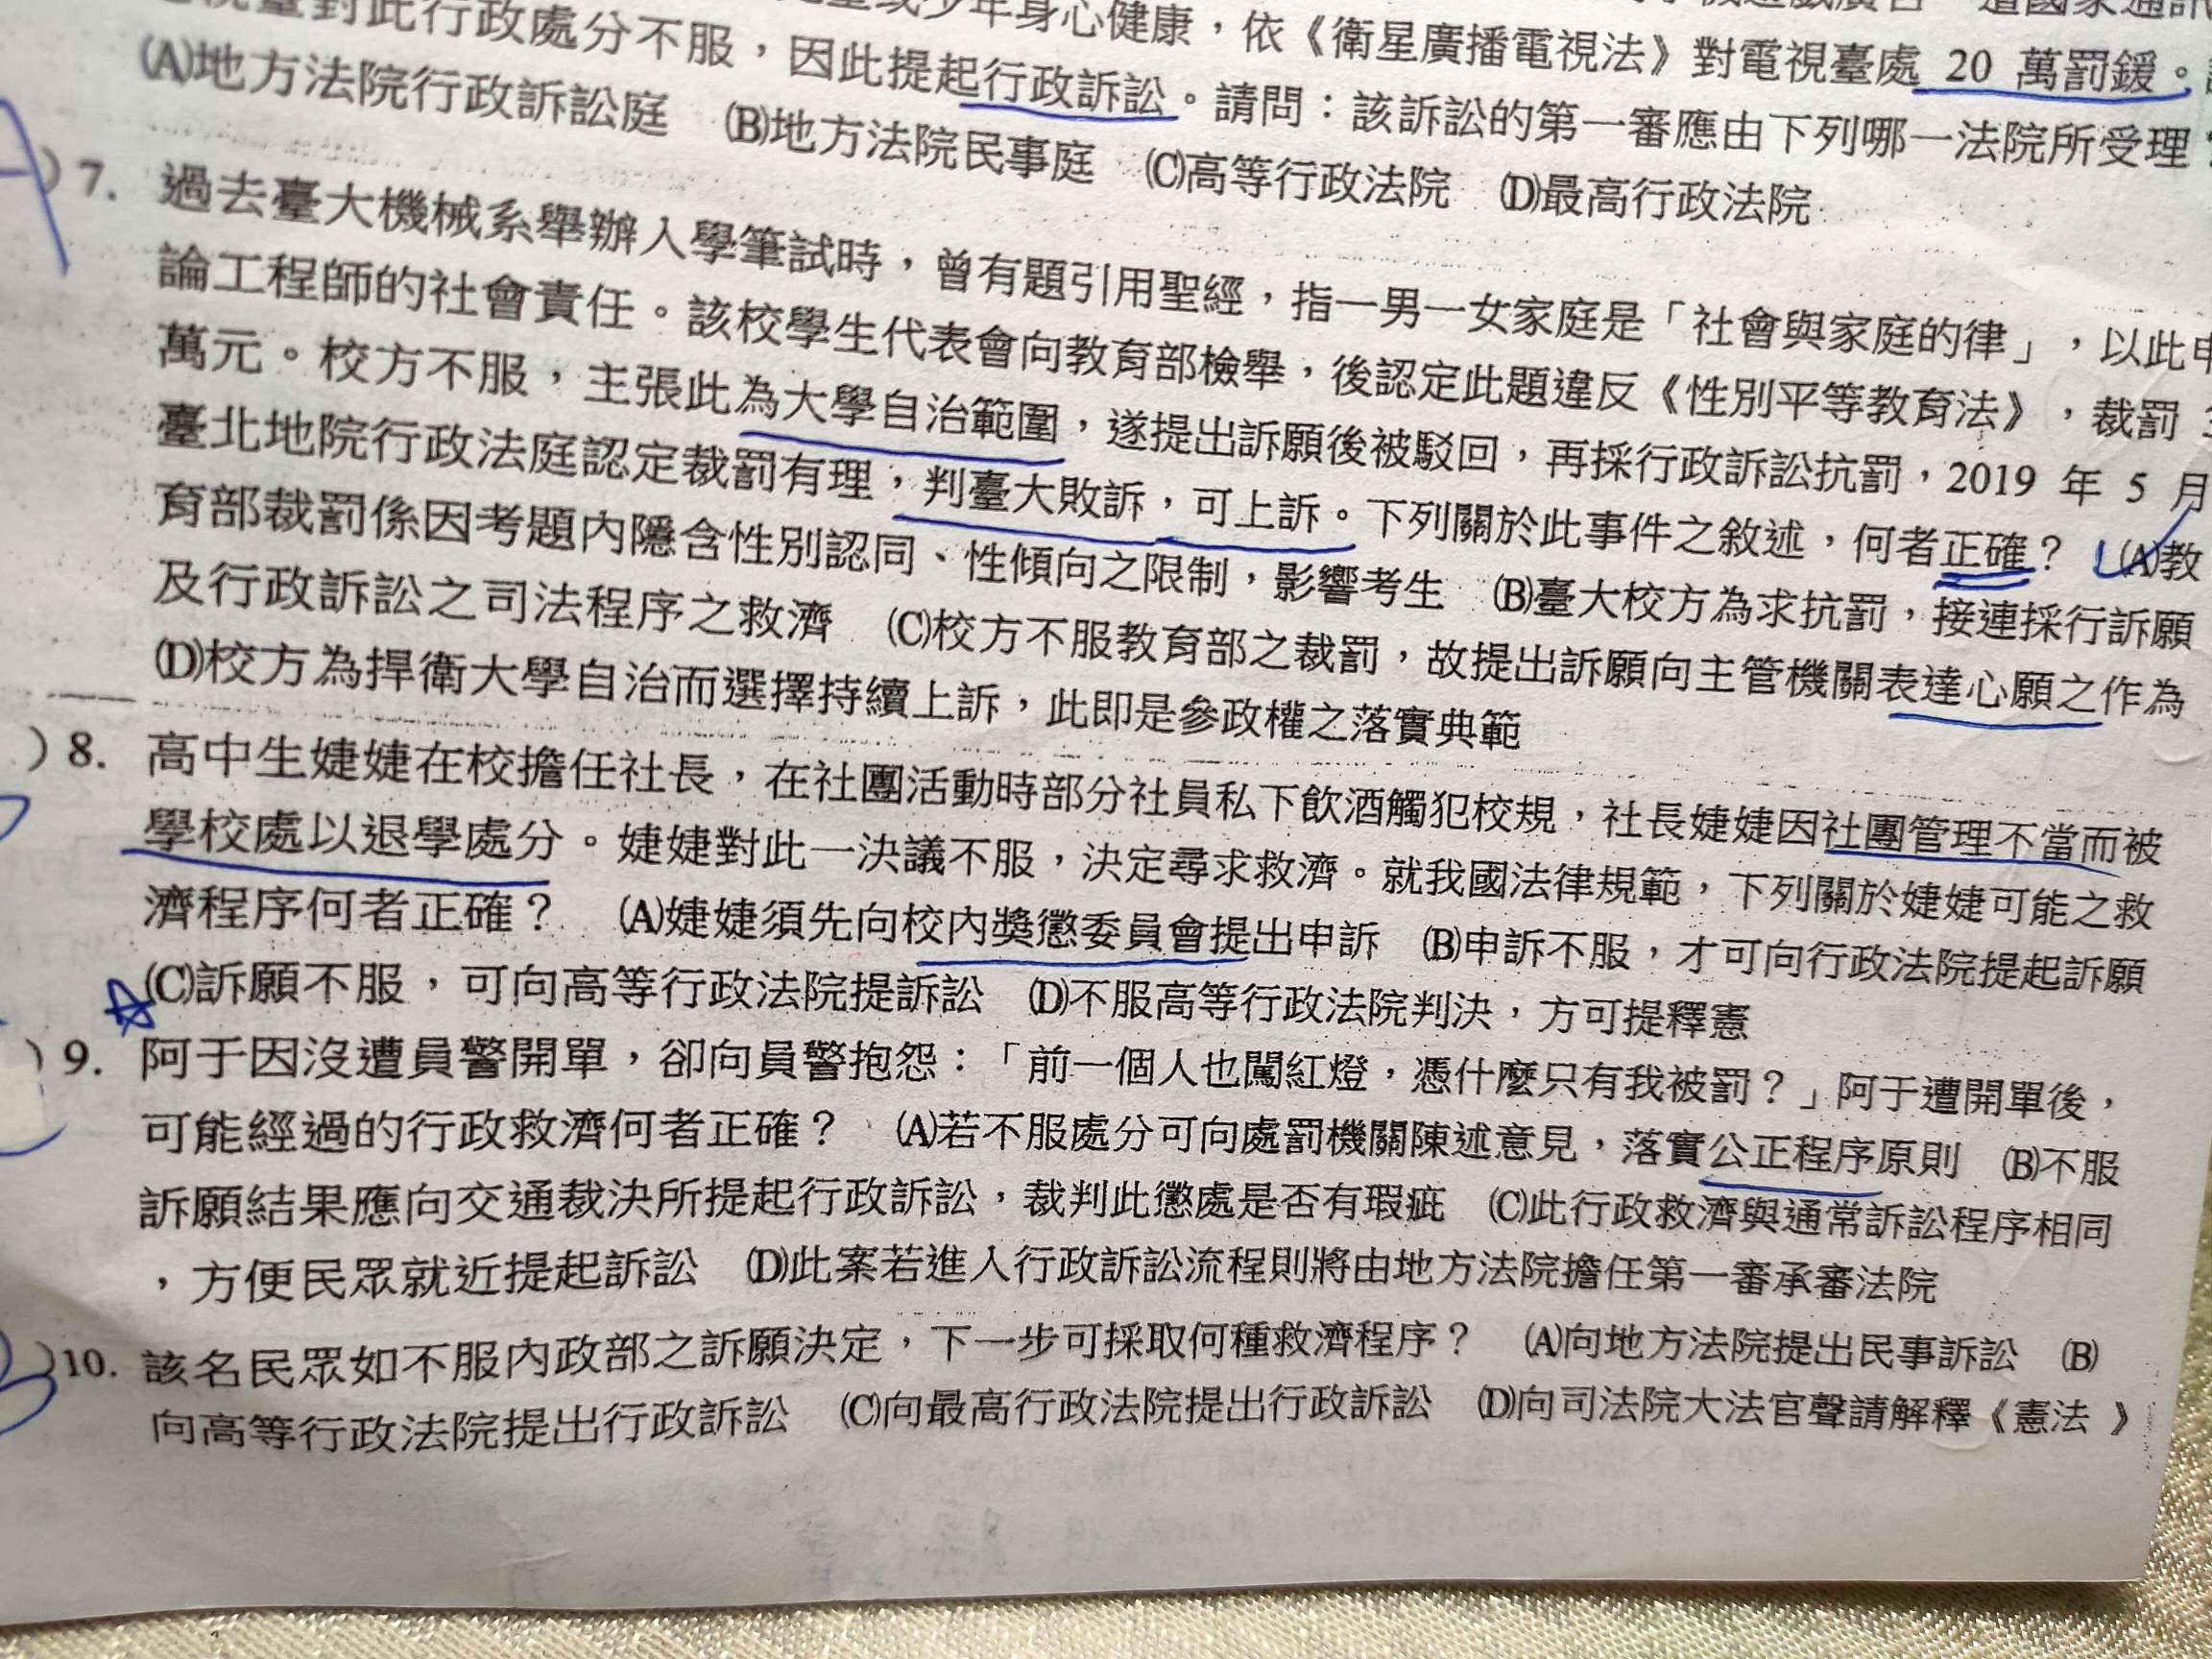 電視臺對此行政處分不服，因此提起行政訴訟。請問：該訴訟的第一審應由下列哪一法院所受理
少年身心健康，依《衛星廣播電視法》對電視臺處 20 萬罰鍰。
(A)地方法院行政訴訟庭 (B)地方法院民事庭 (C)高等行政法院 (D)最高行政法院
A)7. 過去臺大機械系舉辦入學筆試時，曾有題引用聖經，指一男一女家庭是「社會與家庭的律」，以此申
論工程師的社會責任。該校學生代表會向教育部檢舉，後認定此題違反《性別平等教育法》，裁罰
萬元。校方不服，主張此為大學自治範圍，遂提出訴願後被駁回，再採行政訴訟抗罰，2019 年 5 月
臺北地院行政法庭認定裁罰有理，判臺大敗訴，可上訴。下列關於此事件之敘述，何者正確？ (A)教
育部裁罰係因考題內隱含性別認同、性傾向之限制，影響考生 (B)臺大校方為求抗罰，接連採行訴願
及行政訴訟之司法程序之救濟 (C)校方不服教育部之裁罰，故提出訴願向主管機關表達心願之作為
(D)校方為捍衛大學自治而選擇持續上訴，此即是參政權之落實典範
)8. 高中生婕婕在校擔任社長，在社團活動時部分社員私下飲酒觸犯校規，社長婕婕因社團管理不當而被
學校處以退學處分。婕婕對此一決議不服，決定尋求救濟。就我國法律規範，下列關於婕婕可能之救
濟程序何者正確？ (A)婕婕須先向校內獎懲委員會提出申訴 (B)申訴不服，才可向行政法院提起訴願
☆(C)訴願不服，可向高等行政法院提訴訟 (D)不服高等行政法院判決，方可提釋憲
)9. 阿于因沒遭員警開單，卻向員警抱怨：「前一個人也闖紅燈，憑什麼只有我被罰？」阿于遭開單後，
可能經過的行政救濟何者正確？ (A)若不服處分可向處罰機關陳述意見，落實公正程序原則 (B)不服
訴願結果應向交通裁決所提起行政訴訟，裁判此懲處是否有瑕疵 (C)此行政救濟與通常訴訟程序相同
，方便民眾就近提起訴訟 (D)此案若進入行政訴訟流程則將由地方法院擔任第一審承審法院
B)10. 該名民眾如不服內政部之訴願決定，下一步可採取何種救濟程序？ (A)向地方法院提出民事訴訟 (B)
向高等行政法院提出行政訴訟 (C)向最高行政法院提出行政訴訟 (D)向司法院大法官聲請解釋《憲法》